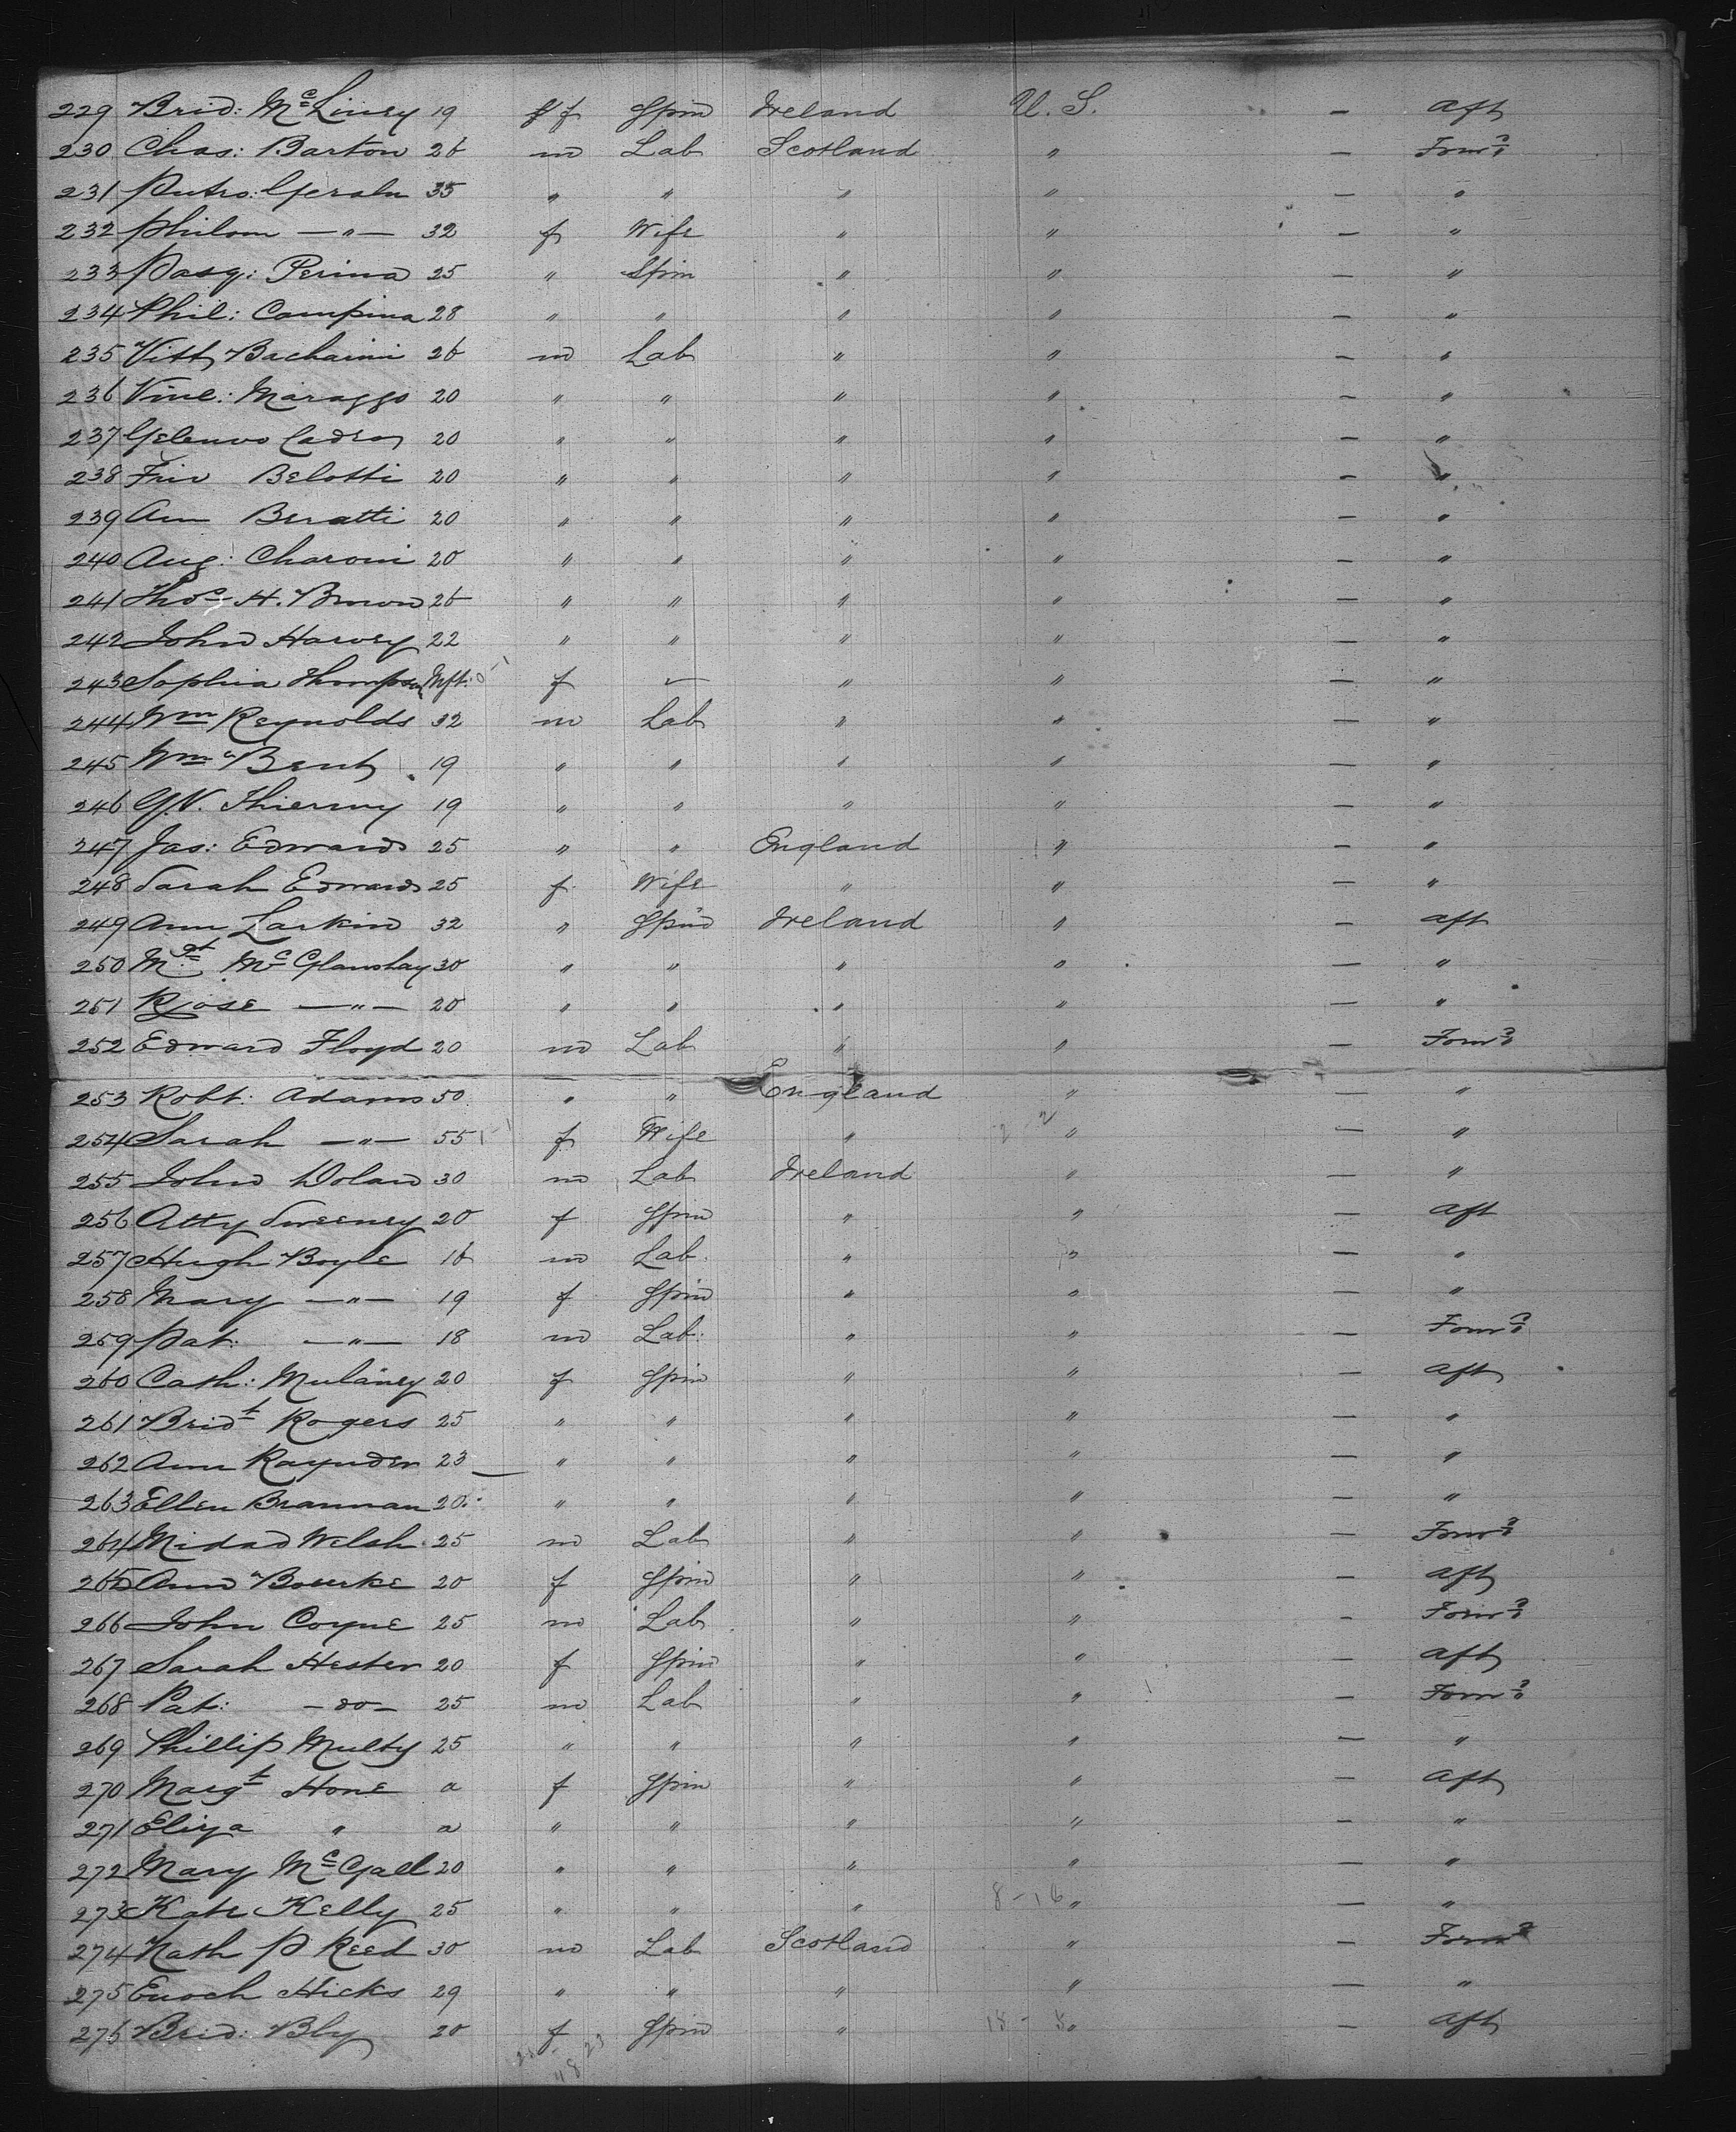 229 Brid: McLiney 19 f Spin Ireland U. S. — aft
230 Chas: Barton 26 m Lab Scotland " — Forwd
231 Putro: Geralu 35 " " " " — "
232 Philom — " — 32 f Wife " " — "
233 Pasq: Perina 25 " Spin " " — "
234 Phil: Campina 28 " " " " — "
235 Vitt Bacharini 26 m Lab " " — "
236 Vinc: Maraggo 20 " " " " — "
237 20 " " " " — "
238 Belotti 20 " " " " — "
239 Ann Beratti 20 " " " " — "
240 Aug: Charoni 20 " " " " — "
241 Thos H. Brown 26 " " " " — "
242 John Harvey 22 " " " " — "
243 Sophia Thompson Inft: f — " " — "
244 Wm Reynolds 32 m Lab " " — "
245 Wm Bent 19 " " " " — "
246 19 " " " " — "
247 Jas: Edwards 25 " " England " — "
248 Sarah Edwards 25 f Wife " " — "
249 Ann Larkin 32 " Spin Ireland " — aft
250 Mgt McGlanshay 30 " " " " — "
251 Rose — " — 20 " " " " — "
252 Edward Floyd 20 m Lab " " — Forwd
253 Robt: Adams 50 " " England " — "
254 Sarah — " — 55 f Wife " " — "
255 John Dolan 30 m Lab Ireland " — "
256 Atty Sweeney 20 f Spin " " — aft
257 Hugh Boyle 16 m Lab. " " — "
258 Mary — " — 19 f Spin " " — "
259 Pat: — " — 18 m Lab: " " — Forwd
260 Cath: Mulaney 20 f Spin " " — aft
261 Bridt Rogers 25 " " " " — "
262 Ann Raynder 23 " " " " — "
263 Ellen Brannan 20 " " " " — "
264 Welsh 25 m Lab " " — Forwd
265 Ann Bourke 20 f Spin " " — aft
266 John Coyne 25 m Lab " " — Forwd
267 Sarah Hester 20 f Spin " " — aft
268 Pat: — do — 25 m Lab " " — Forwd
269 Phillip Multy 25 " " " " — "
270 Margt Hone a f Spin " " — aft
271 Eliza " a " " " " — "
272 Mary McGall 20 " " " " — "
273 Kate Kelly 25 " " " 8-16 " — "
274 Nath P Reed 30 m Lab Scotland " — Forwd
275 Enoch Hicks 29 " " " " — "
276 Brid: Bly 20 f Spin " " — aft